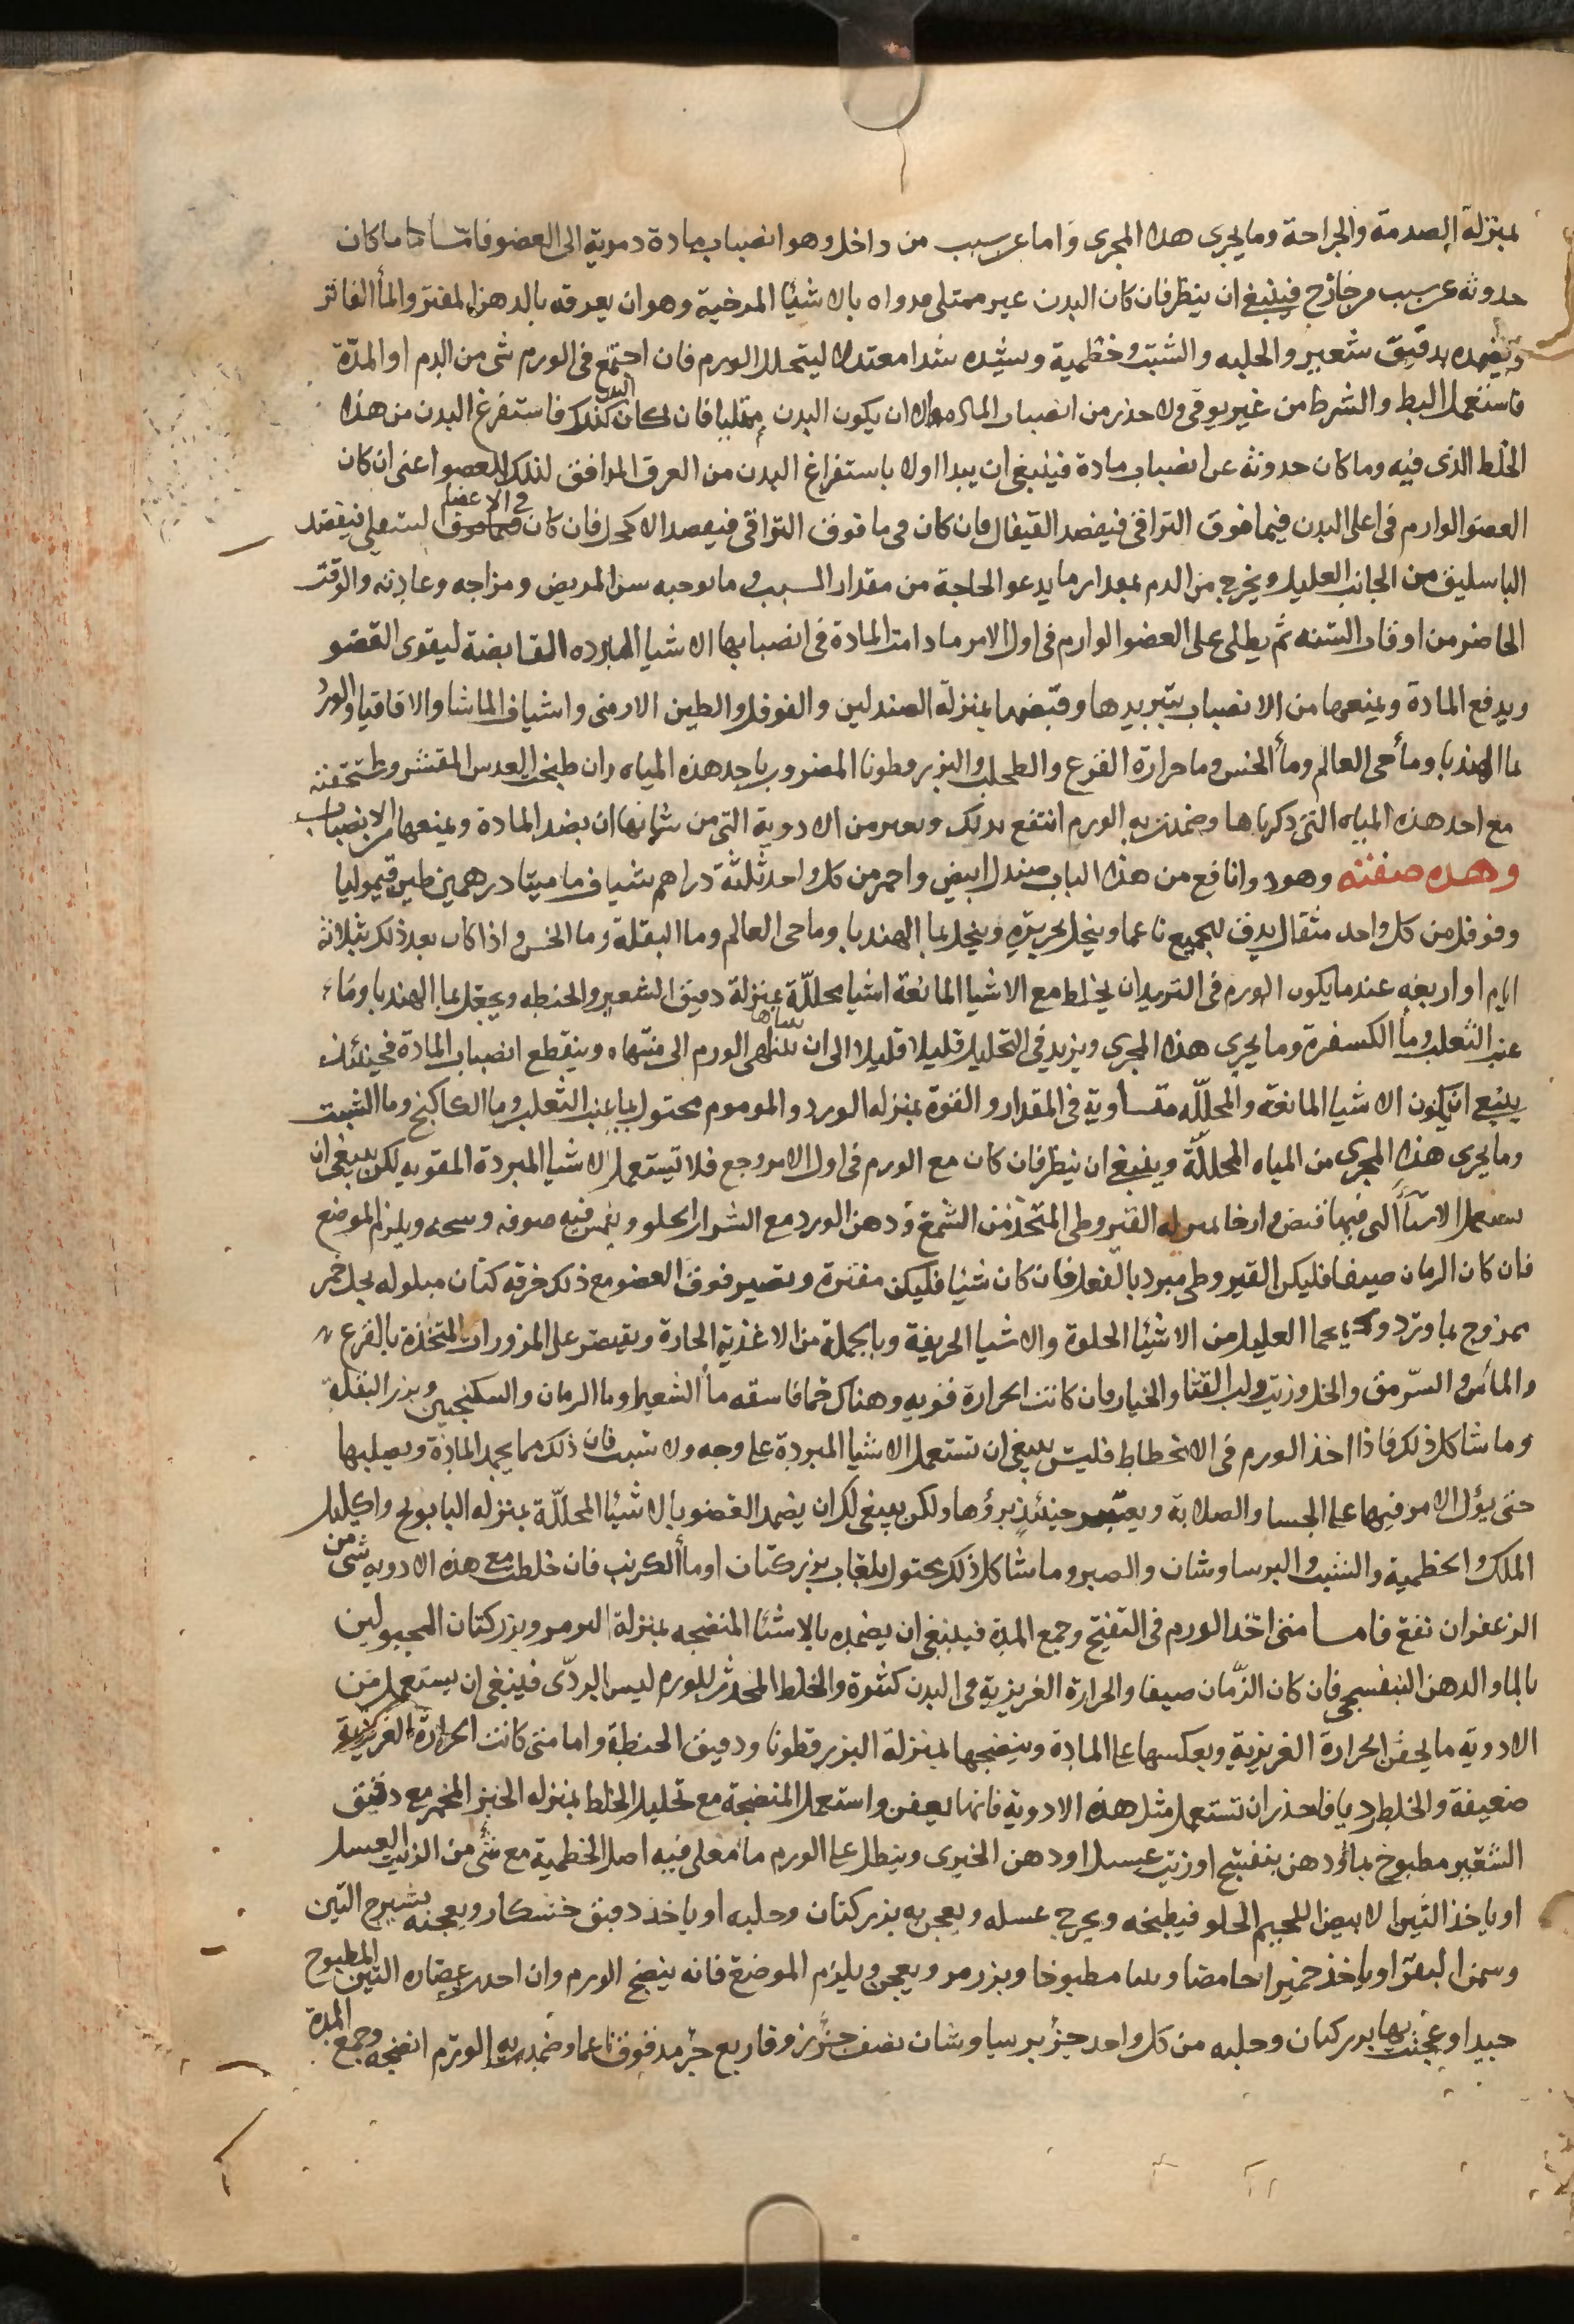 بمنزلة الصدمة والجراحة وما يجرى هذا المجرى واما عن سبب من داخل وهو انصباب مادة دموية الى العضو فاما ما كان
حدوثه عن سبب من خارج فينبغى ان ينظر فان كان البدن غير ممتلى مدواه بالاشيا المرخية وهو ان يعرقه بالدهن المفتر والمأ الفاتر
ويضمده بدقيق شعير والحلبه والشبت وخطمية وسده شدا معتدلا ليتحلل الورم فان اجتمع فى الورم شى من الدم او المدة
فاستعمل البط والشرط من غير توقى ولا حذر من انصباب الماده الا ان يكون البدن ممتليا فان كان البدن كذلك فاستفرغ البدن من هذا
الخلط الذى فيه وما كان حدوثه عن انصباب مادة فينبغى ان يبدا اولا باستفراغ البدن من العرق الموافق لذلك العضو اعنى ان كان
العضو الوارم فى اعلى البدن فيما فوق التراقى فيفصد القيفال فان كان فى ما فوق التراقى فيفصد الاكحل فان كان فى الاعضا السفلى فيفصد
الباسليق من الجانب العليل ويخرج من الدم بمقدار ما يدعو الحاجة من مقدار السبب وما يوجبه سن المريض ومزاجه وعادته والوقت
الحاضر من اوقات السنه ثم يطلى على العضو الوارم فى اول الامر ما دامت المادة فى انصبابها الاشيا المبرده القابضة ليقوى العضو
ويدفع المادة ويمنعها من الانصباب بتبريدها وقبضها بمنزلة الصندلين والفوفل والطين الارمنى واشياف الماميثا والاقاقيا والورد
بما الهندبا وماً حى العالم وماً الخس وما حرارة القرع والطحلب والبزرقطونا المضروب باحد هذه المياه وان طبخ العدس المقشر وسحقته
مع احد هذه المياه التى ذكرناها وضمدت به الورم انتفع بذلك وبغيره من الادوية التى من شانها ان تصد المادة ويمنعها من الانصباب
وهذه صفته وهو دوا نافع من هذا الباب صندل ابيض واحمر من كل واحد ثلثة دراهم شياف ماميثا درهمين طين قيموليا
وفوفل من كل واحد مثقال يدق الجميع ناعما وينخل بحريره وينحل بما الهندبا وما حى العالم وما البقلة وما الخس واذا كان بعد ذلك بثلاثة
ايام او اربعه عندما يكون الورم فى التزيد ان يخلط مع الاشيا المانعة اشيا محللّة بمنزلة دقيق الشعير والحنطه ويعجن بما الهندبا وماء
عنب الثعلب وماً الكسفرة وما يجرى هذا المجرى ويزيد فى التحليل قليلا قليلا الى ان يتناهى الورم الى منتهاه وينقطع انصباب المادة فحينئذ
ينبغى ان يكون الاشيا المانعة والمحللّه متساوية فى المقدار والقوة بمنزله الورد والموم معجون بما عنب الثعلب وما الكاكنج وما الشبت
وما يجرى هذا المجرى من المياه المحللّة وينبغى ان ينظر فان كان مع الورم فى اول الامر وجع فلا تستعمل الاشيا المبردة المقويه لكن ينبغى ان
يستعمل الاشيأ التى فيها قبض وارخا بمنزله القيروطى المتخذ من الشمع ودهن الورد مع الشراب الحلو ويغمس فيه صوفه وسخه ويلزم الموضع
فان كان الزمان صيفا فليكن القيروطى مبرد بالفعل فان كان شتيا فليكن مفترة ويصير فوق العضو مع ذلك خرقه كتان مبلوله بخل خمر
ممزوج بما ورد ويحما العليل من الاشيا الحلوة والاشيا الحريفة وبالجملة من الاغذية الحارة ويقتصر على المزورات المتخذة بالقرع
والماش والسرمق والخل وزيت ولب القثا والخيار فان كانت الحرارة قويه وهناك حما فاسقه ماً الشعير وما الرمان والسكنجبين وبزر البقلة
وما شاكل ذلك فاذا اخذ الورم فى الانحطاط فليس ينبغى ان تستعمل الاشيا المبردة على وجه ولا سبب فان ذلك مما يجمد المادة ويصلبها
حتى يؤل الامر فيها على الجسا والصلابة ويعسر حينئذٍ برؤها ولكن ينبغى لك ان يضمد العضو بالاشيا المحللّة بمنزله البابونج واكليل
الملك والخطمية والشبت والبرساوشان والصبر وما شاكل ذلك معجون بلعاب بزر كتان او ماً الكرنب فان خلطت مع هذه الادويه شى من
الزعفران نفع فاما متى اخذ الورم فى التفتيح وجمع المدة فينبغى ان يضمده بالاشيا المنضجه بمنزلة المرو وبزر كتان المعجونين
بالما والدهن البنفسجى فان كان الزّمان صيفا والحرارة الغريزية فى البدن كثيرة والخلط المحدث للورم ليس بالردّى فينبغى ان يستعمل من
الادوية ما يحقن الحرارة الغريزية ويعكسها على المادة وينضجها بمنزلة البزرقطونا ودقيق الحنطة واما متى كانت الحرارة الغريزية
ضعيفة والخلط رديا فاحذر ان تستعمل مثل هذه الادوية فانها تعفن واستعمل المنضجة مع تحليل الخلط بمنزله الخبز المخمر مع دقيق
الشعير مطبوخ بماً ودهن بنفسج او زيت عسل او دهن الخيرى وينطل على الورم ماً مغلى فيه اصل الخطمية مع شى من الزيت العسل
او ياخذ التين الابيض اللحيم الحلو فيطبخه ويخرج عسله ويعجن به بزر كتان وحلبه او ياخذ دقيق خشكار ويعجنه بشيرج التين
وسمن البقر او ياخذ خميرا حامضا وتينا مطبوخا وبزر مرو ويعجن ويلزم الموضع فانه ينضج الورم وان اخذت عصاره التين المطبوخ
جيدا وعجنت بها بزر كتان وحلبه من كل واحد جزؤ برسياوشان نصف جزؤ زوفا ربع جزؤ مدقوق ناعما وضمدت به الورم انضجه وجمع المدة